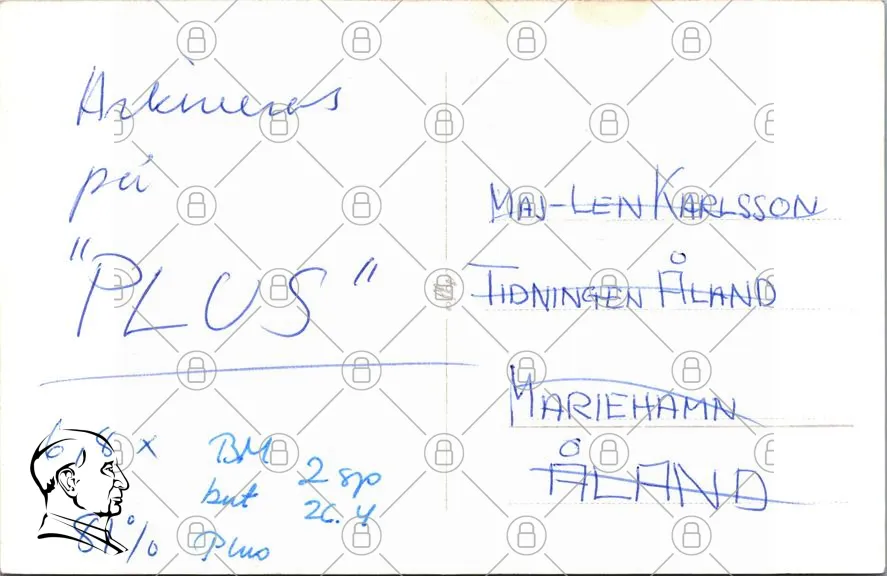 Arkiveras
på
"PLUS"
MAJ-LEN KARLSSON
TIDNINGEN ÅLAND
MARIEHAMN
ÅLAND
6,8 x BM 2 sp
but 26.4
81% Plus